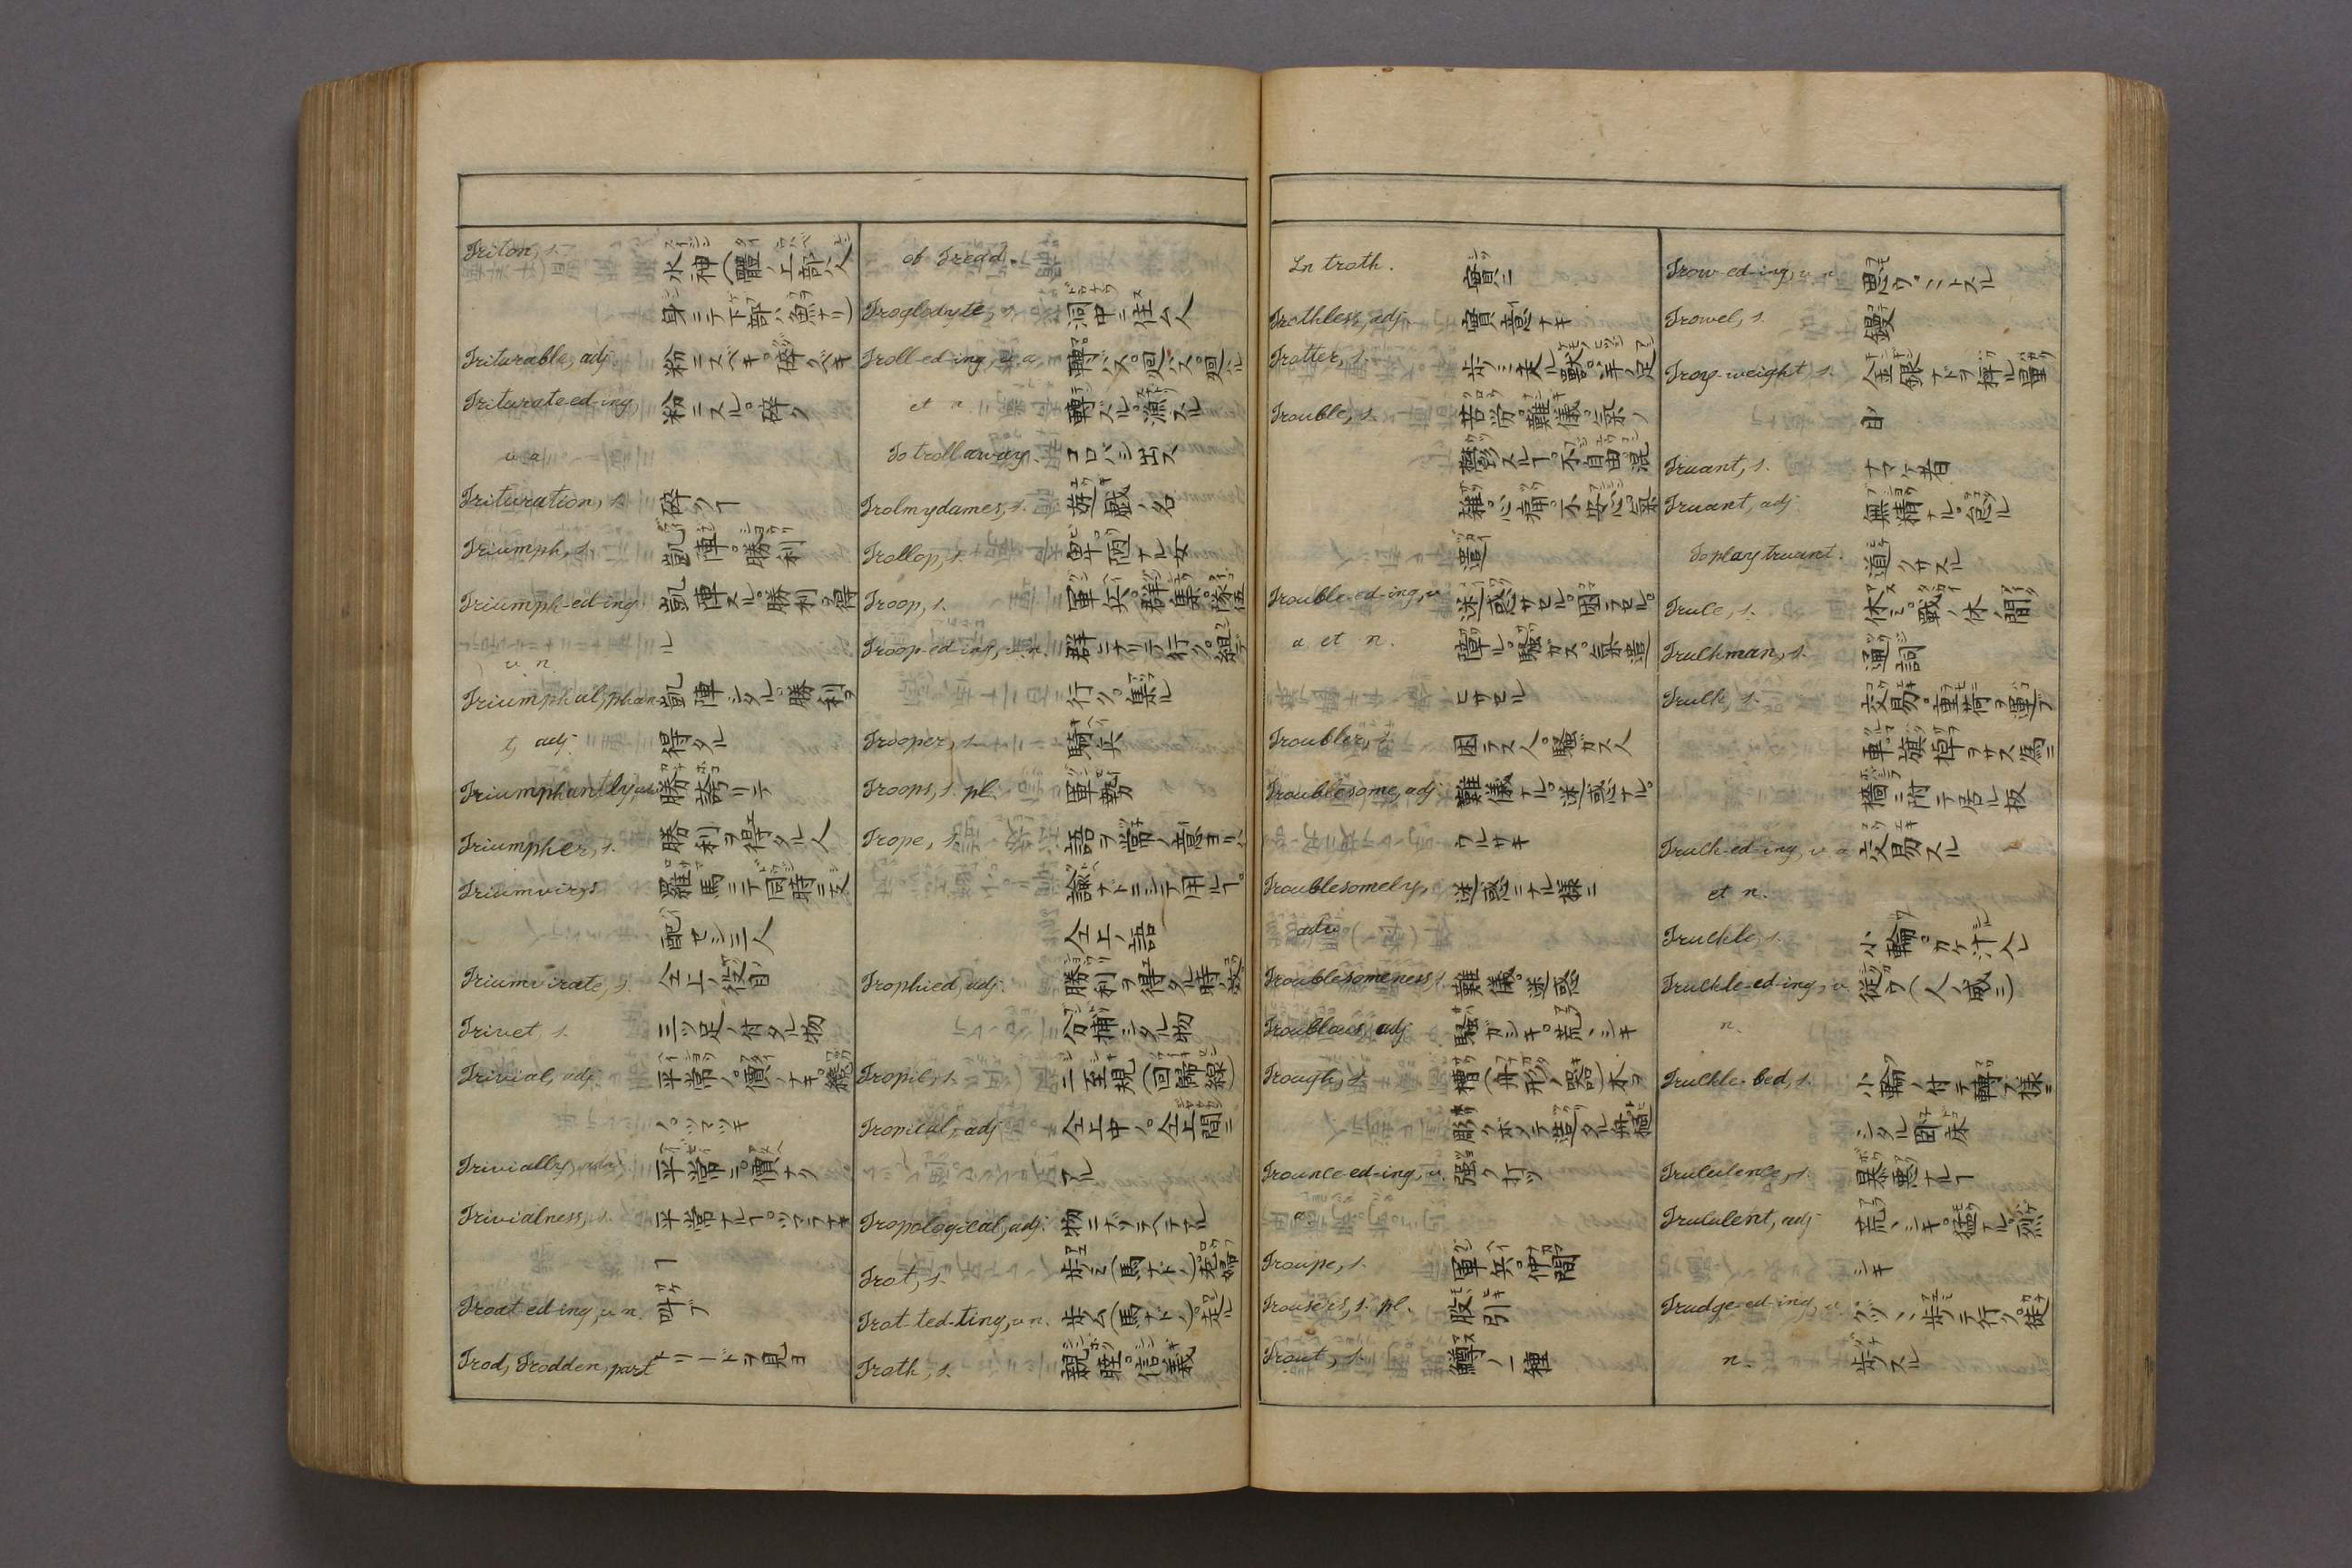 Triton, s. 水神(體ノ上部ハ人
身ニテ下部ハ魚ナリ)
Triturable, adj. 粉ニスベキ。碎クベキ
Triturate-ed-ing, 粉ニスル。碎ク
v. a.
Trituration, s. 碎クヿ
Triumph, s. 凱陣。勝利
Triumph-ed-ing. 凱陣スル。勝利ヲ得
v. n. ル
Triumphal, phan- 凱陣シタル。勝利ヲ
t, adj. 得タル
Triumphantly, adv. 勝誇リテ
Triumpher, s. 勝利ヲ得タル人
Triumvirs. 羅馬ニテ同時ニ支
配セシ三人
Triumvirate, s. 仝上ノ役目
Trivet, s. 三ツ足ノ付タル物
Trivial, adj. 平常ノ。價ノナキ。
Trivially, adv. 平常ニ。價ナク
Trivialness, s. 平常ナルヿ。ツマラナキ
ヿ
Troat-ed-ing, v. n. 叫ブ
Trod, Trodden, part トリードヲ見ヨ
of Tread.
Troglodyte, s. 洞中ニ住ム人
Troll-ed-ing, v. a. 轉バス。廻ハス。廻ル
et n. 轉ズル。漁スル
To troll away. コロバシ出ス
Trolmydames, s. 遊戯ノ名
Trollop, s. 卑陋ナル女
Troop, s. 軍兵。群集。隊伍
Troop-ed-ing, v. n. 群ニナリテ行ク。組デ
行ク。集ル
Trooper, s. 騎兵
Troops, s. pl. 軍勢
Trope, s. 語ヲ常ノ意ヨリハ
譬ナドニシテ用ルヿ。
仝上ノ語
Trophied, adj. 勝利ヲ得タル時
分捕シタル物
Tropic, s. 二至規(回歸線)
Tropical, adj. 仝上中ノ。仝上間ニ
アル
Tropological, adj. 物ニナゾラヘテアル
Trot, s. 歩ミ(馬ナドノ)老婦
Trot-ted-ting, v. n. 歩ム(馬ナドノ)走ル
Troth, s. 親睦。信義
In troth. 實ニ
Trothless, adj. 實意ナキ
Trotter, s. 歩ミ走ル獸。羊ノ足
Trouble, s. 苦労。難儀。氣ノ
鬱スルヿ。不自由。混
雜。心痛。不安心。氣
遣
Trouble-ed-ing, v. 迷惑サセル。困ラセル。
a. et n. 障ル。騒ガス。氣遣
ヒサセル
Troubler, s. 困ラス人。騒ガス人
Troublesome, adj. 難儀ナル。迷惑ナル。
ウルサキ
Troublesomely, 迷惑ニナル様ニ
adv.
Troublesomeness, s. 難儀。迷惑
Troublous, adj. 騒ガシキ。荒々シキ
Trough, s. 槽(舟形ノ器)木ヲ
彫クボメテ造タル
Trounce-ed-ing, v. 强ク打ツ
a.
Troupe, s. 軍兵。仲間
Trousers, s. pl. 股引
Trout, s. 鱒ノ一種
Trow-ed-ing, v. n. 思フ。
Trowel, s. 鏝
Troy-weight, s. 金銀ナドヲ秤ル量
目
Truant, s. ナマケ者
Truant, adj. 無精ナル。怠ル
To play truant. 道クサスル
Truce, s. 休ミ。戰ノ休ノ間
Truchman, s. 通詞
Truck, s. 交易。重荷ヲ運ブ
車。旗棹ヲサス爲ニ
檣ニ附テ居ル板
Truck-ed-ing, v. a. 交易スル
et n.
Truckle, s. 小輪。
Truckle-ed-ing, v. 從フ(人ノ威ニ)
n.
Truckle-bed, s. 小輪ノ付テ轉ブ様ニ
シタル臥床
Truculence, s. 暴悪ナルヿ
Truculent, adj. 荒々シキ。猛ナル。烈
シキ
Trudge-ed-ing, v. 歩ミテ行ク。徒
n. 歩スル